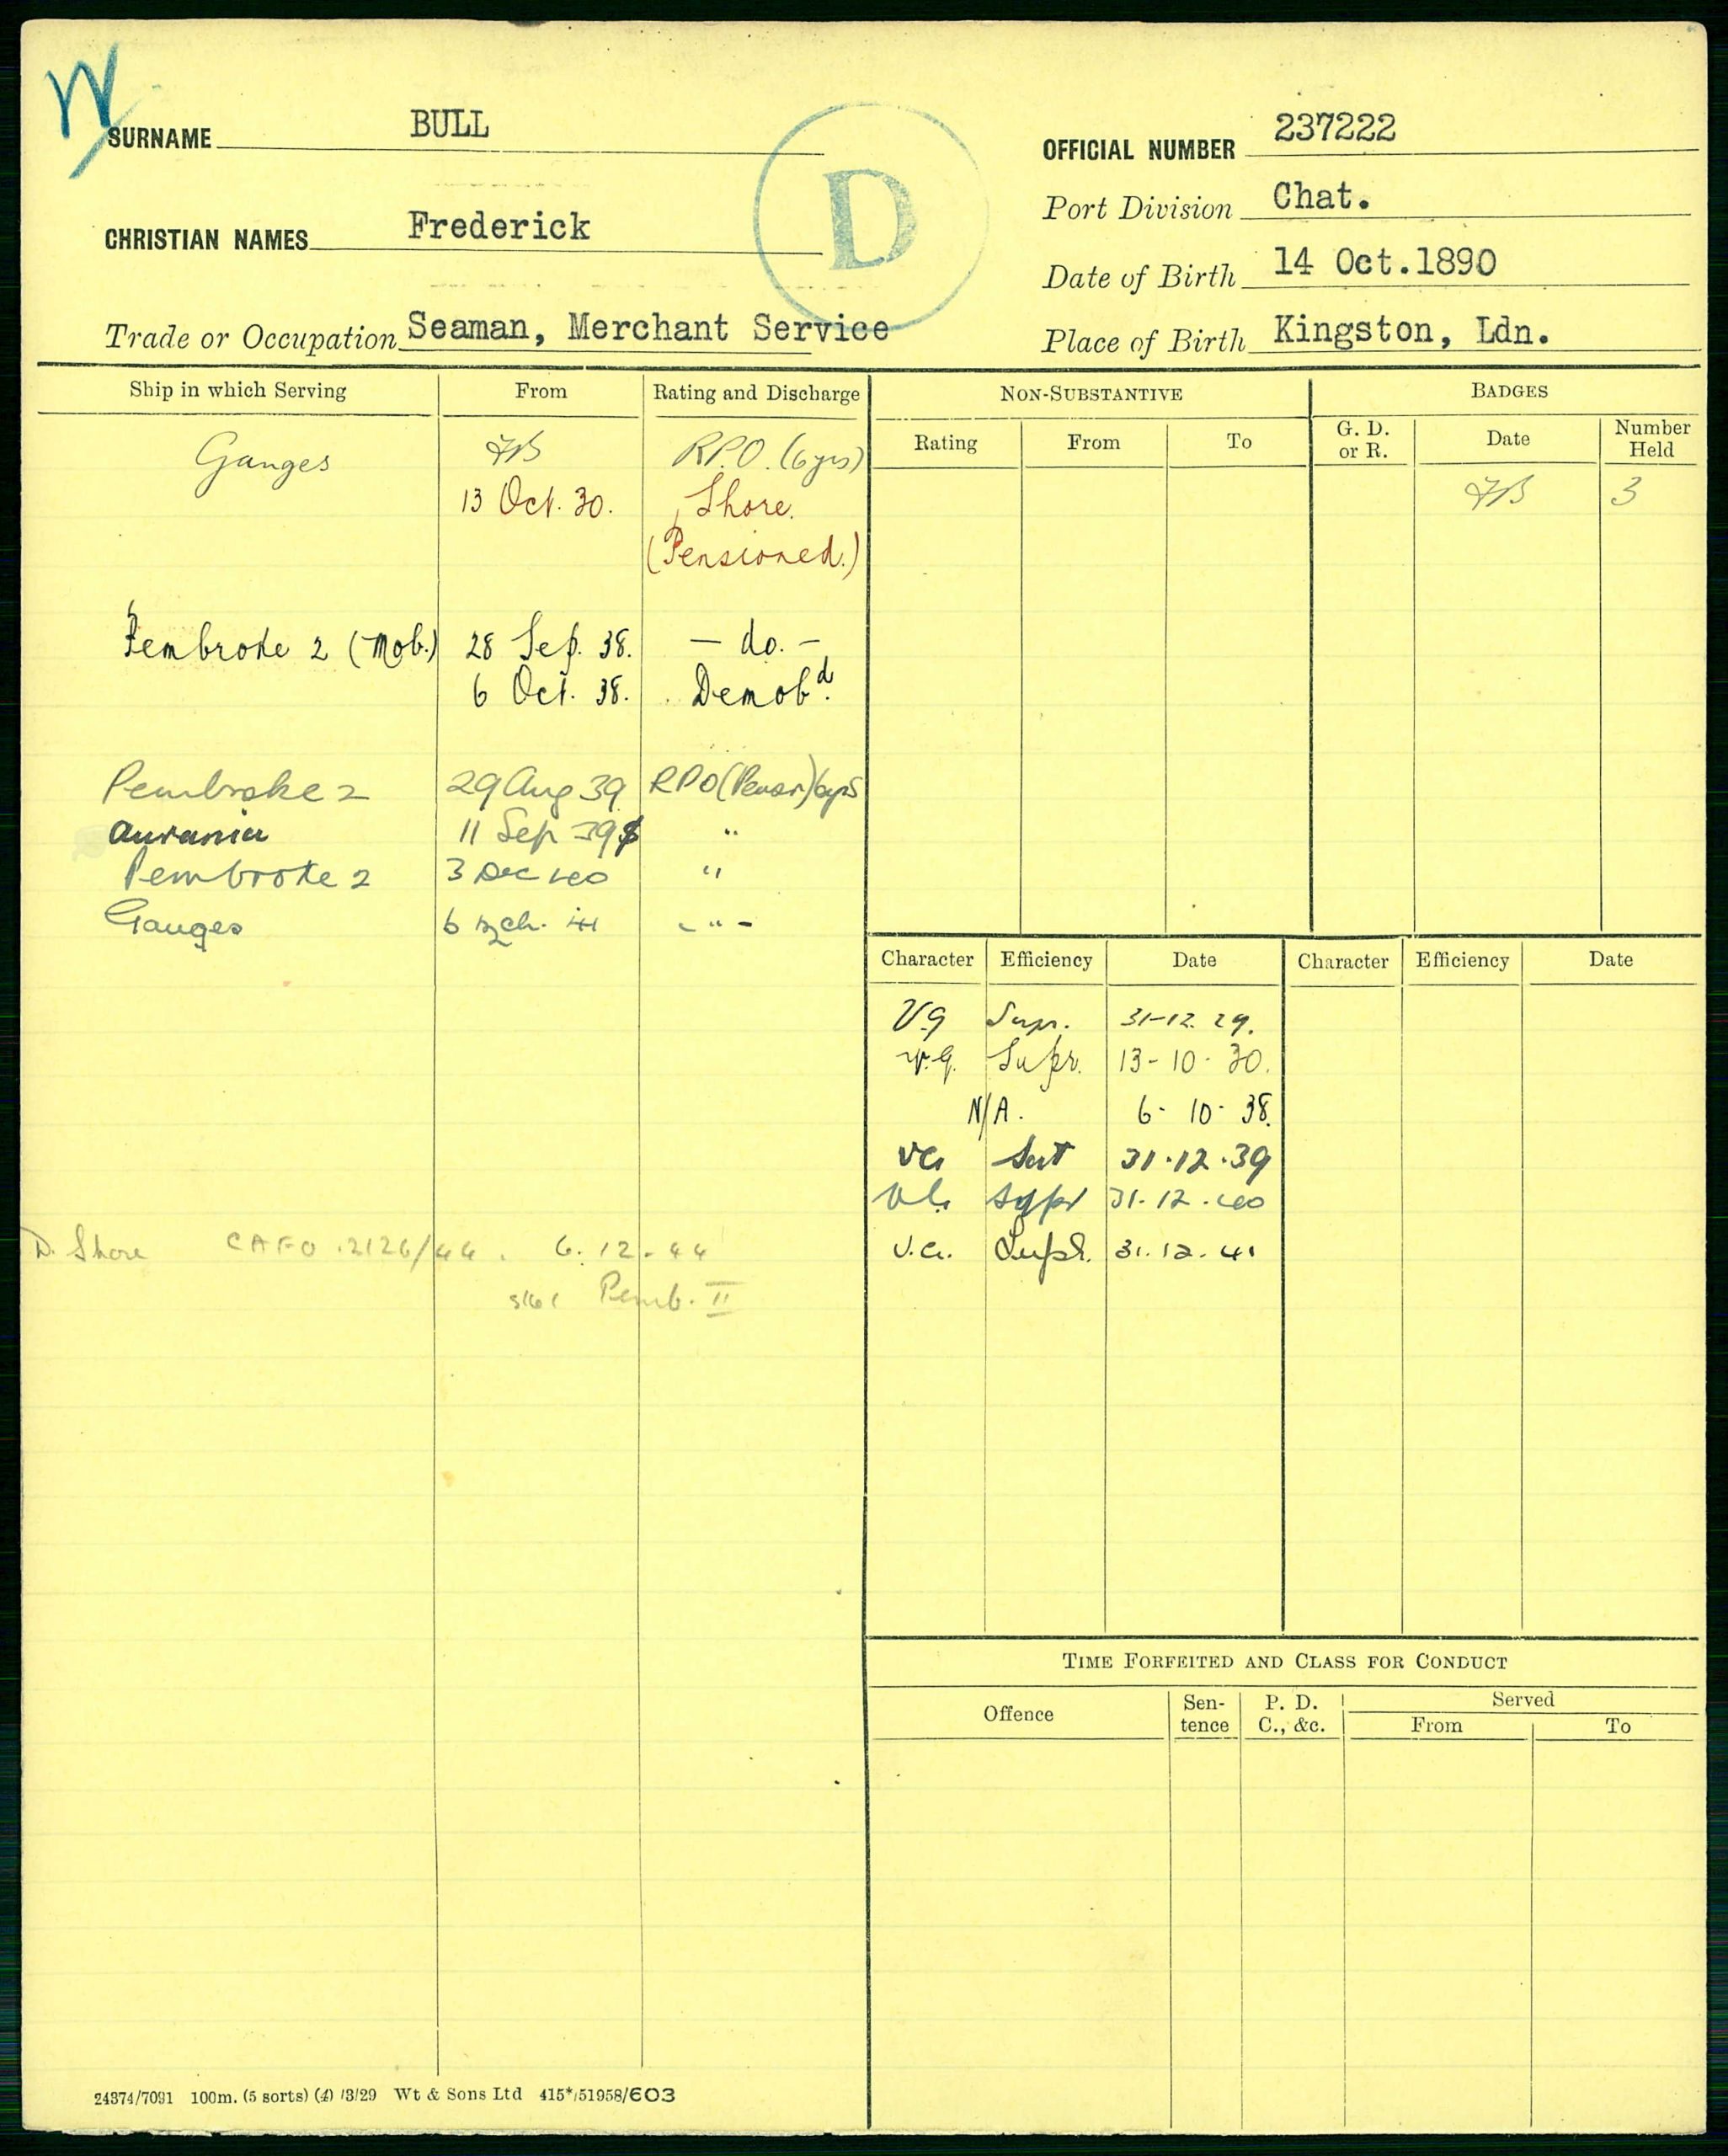 W
SURNAME BULL
OFFICIAL NUMBER 237222
D
Port Division Chat.
CHRISTIAN NAMES Frederick
Date of Birth 14 Oct. 1890
Trade or Occupation Seaman, Merchant Service
Place of Birth Kingston, Ldn.
Ship in which Serving From Rating and Discharge
Ganges RPO. (6yrs)
13 Oct. 30. Shore.
(Pensioned.)
Pembroke 2 (Mob.) 28 Sep. 38. — do. —
6 Oct. 38. Demobd.
Pembroke 2 29 Aug 39 RPO (Pens) 6yrs
Aurania 11 Sep 39 "
Pembroke 2 3 Dec 40 "
Ganges 6 Mch. 41 - " -
D. Shore CAFO 2126/44. 6.12.44
Pemb. II
NON-SUBSTANTIVE BADGES
Rating From To G. D. or R. Date Number Held
3
Character Efficiency Date Character Efficiency Date
VG Supr. 31-12.29.
V.G. Supr. 13-10-30.
N/A. 6-10-38.
VG Sat 31.12.39
VG 31.12.40
V.G. Supr. 31.12.41
TIME FORFEITED AND CLASS FOR CONDUCT
Offence Sen- tence P. D. C., &c. Served
From To
24374/7091 100m. (5 sorts) (4) /3/29 Wt & Sons Ltd 415*/51958/603